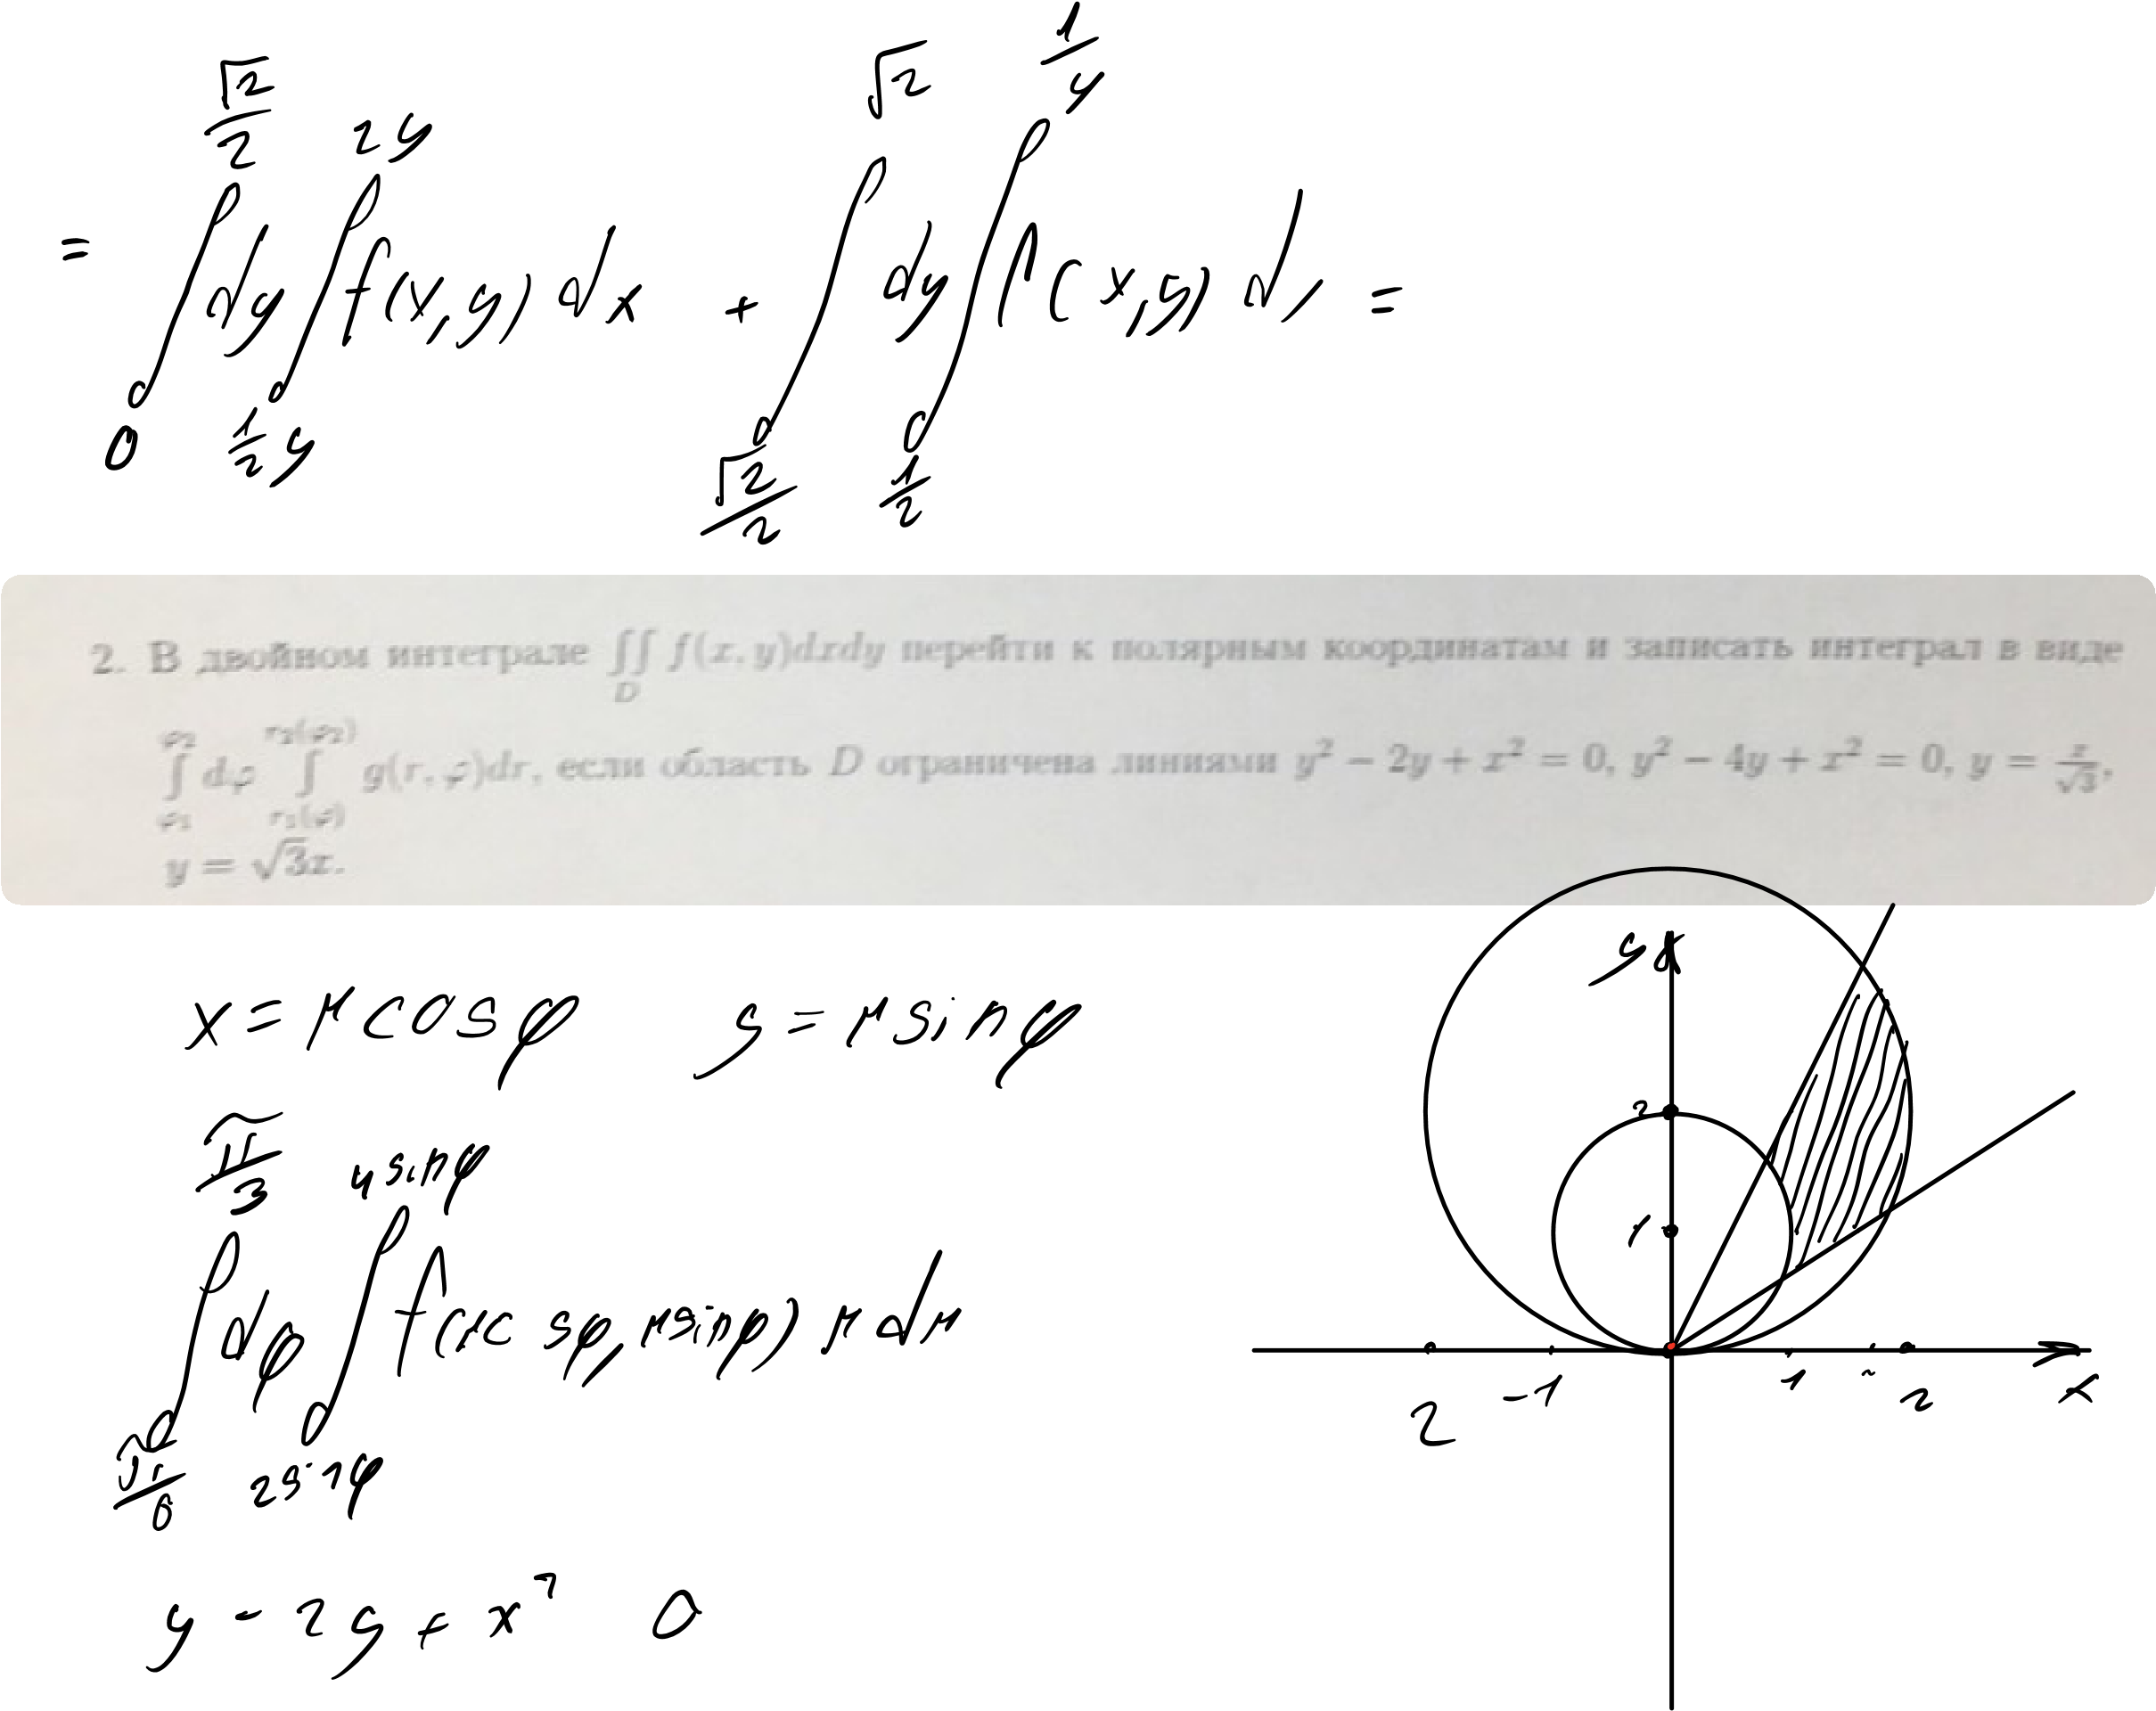 = ∫_0^{√2/2} dy ∫_{1/2 y}^{2y} f(x,y) dx + ∫_{√2/2}^{√2} dy ∫_{1/2}^{1/y} f(x,y) dx =
2. В двойном интеграле ∬_D f(x, y)dxdy перейти к полярным координатам и записать интеграл в виде
∫_{φ₁}^{φ₂} dφ ∫_{r₁(φ)}^{r₂(φ₂)} g(r, φ)dr, если область D ограничена линиями y² − 2y + x² = 0, y² − 4y + x² = 0, y = x/√3,
y = √3x.
x = r cos φ y = r sin φ
∫_{π/6}^{π/3} dφ ∫_{2 sin φ}^{4 sin φ} f(r c sφ, r sin φ) r dr
y − 2y + x² 0
y
2
1
2 −1 1 2 x